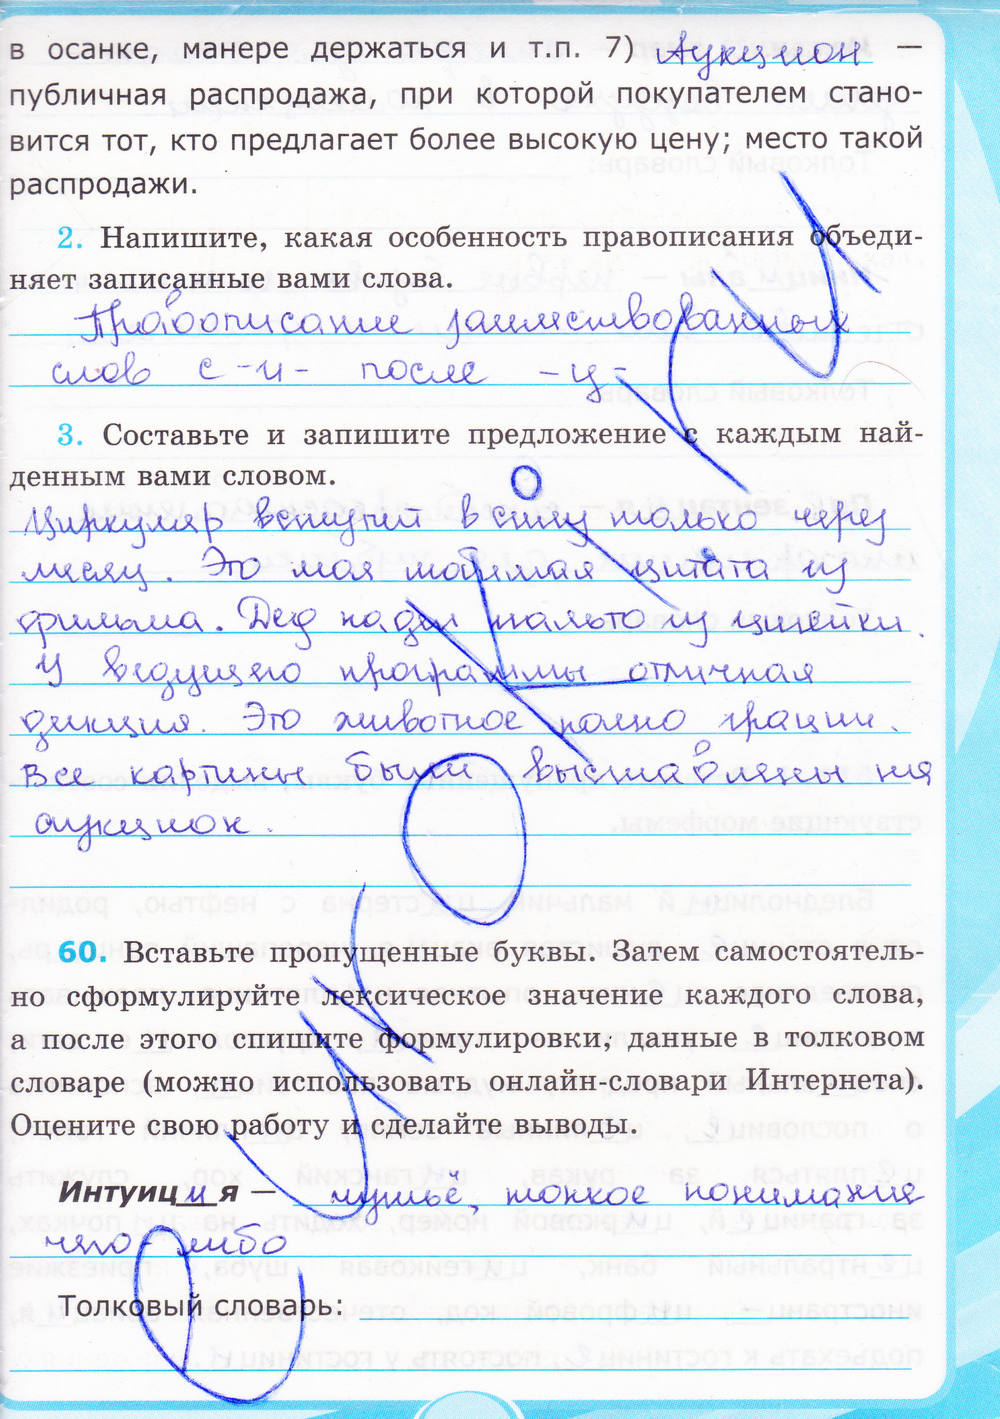 в осанке, манере держаться и т.п. 7) Аукцион —
публичная распродажа, при которой покупателем стано-
вится тот, кто предлагает более высокую цену; место такой
распродажи.
2. Напишите, какая особенность правописания объеди-
няет записанные вами слова.
Правописание заимствованных
слов с -и- после -ц-
3. Составьте и запишите предложение с каждым най-
денным вами словом.
Циркуляр вступит в силу только через
месяц. Это моя любимая цитата из
фильма. Дед надел пальто из цигейки.
У ведущего программы отличная
дикция. Это животное полно грации.
Все картины были выставлены на
аукцион.
60. Вставьте пропущенные буквы. Затем самостоятель-
но сформулируйте лексическое значение каждого слова,
а после этого спишите формулировки, данные в толковом
словаре (можно использовать онлайн-словари Интернета).
Оцените свою работу и сделайте выводы.
Интуиция — чутьё, тонкое понимание
чего-либо
Толковый словарь: